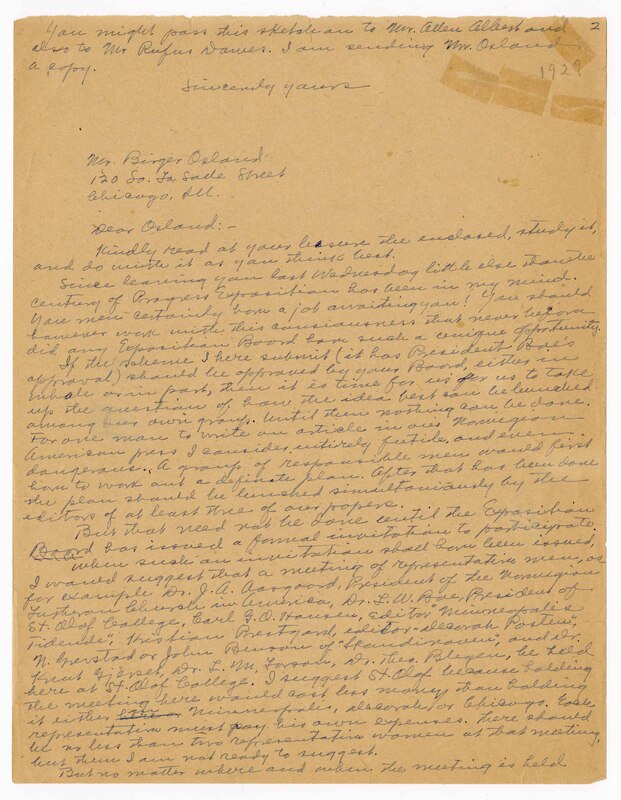 You might pass this sketch on to Mr. Allen Albert and 2
also to Mr Rufus Dawes. I am sending Mr. Osland
a copy. 1929
Sincerely yours
Mr. Birger Osland
120 So. La Salle Street
Chicago, Ill.
Dear Osland:-
Kindly read at your leasure the enclosed, study it,
and do with it as you think best.
Since leaving you last Wednesday little else than the
century of Progress Exposition has been in my mind.
You men certainly have a job awaiting you! You should
however work with this consiousness that never before
did any Exposition Board have such a unique opportunity.
If the scheme I here submit (it has President Boe's
approval) should be approved by your Board, either in
whole or in part, then it is time for us for us to take
up the question of how the idea best can be launched
among our own group. Until then nothing can be done.
For one man to write an article in our Norwegian
American press I consider entirely futile, and even
dangerous. A group of responsible men would first
have to work out a definite plan. After that has been done
the plan should be launched simultaniously by the
editors of at least three of our papers.
But that need not be done until the Exposition
Board has issued a formal invitation to participate.
When such an invitation shall have been issued,
I would suggest that a meeting of representative men, as
for example Dr. J. A. Aasgaard, President of the Norwegian
Lutheran Church in America, Dr. L. W. Boe, President of
St. Olaf College, Carl G. O. Hansen, editor "Minneapolis
Tidende", Kristian Prestgard, editor, "Decorah Posten",
N. Grevstad or John Benson of "Skandinaven", and Dr.
Knut Gjerset, Dr. L. M. Dr. Theo. Blegen, be held
here at St. Olaf College. I suggest St. Olaf because holding
the meeting here would cost less money than holding
it either Minneapolis, Decorah or Chicago. Each
representative must pay his own expenses. There should
be no less than two representative women at that meeting,
but them I am not ready to suggest.
But no matter where and when the meeting is held